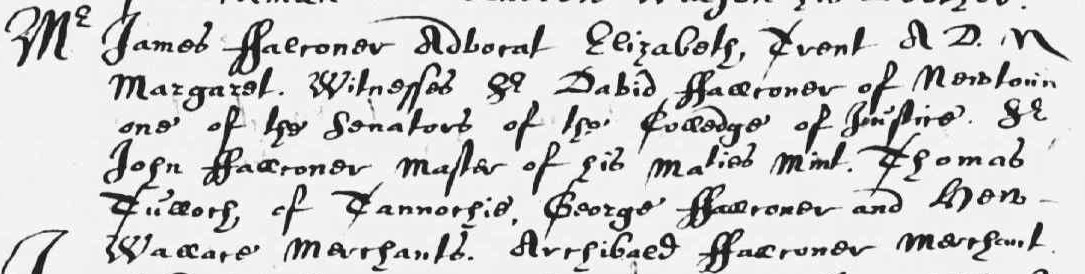 Mr James ffalconer Advocat Elizabeth, Trent A D. N
Margaret. Witnesses Sr David ffalconer of Newtoun
one of the Senators of the Colledge of Justice. Sr
John ffalconer Master of his Maties Mint. Thomas
Tulloch, of Tannochie, George ffalconer and Hew
Wallace Merchants. Archibald ffalconer Merchant.